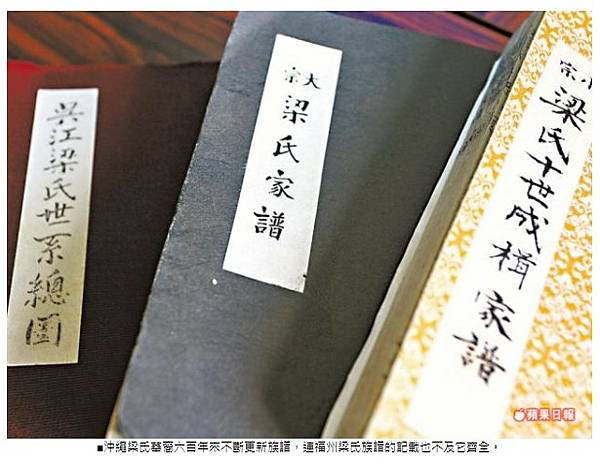 吳江梁氏世系總圖
大宗
梁氏家譜
小宗
梁氏十世成楫家譜
蘋果日報
■沖繩梁氏後裔六百年來不斷更新族譜，連福州梁氏族譜的記載也不及它齊全。